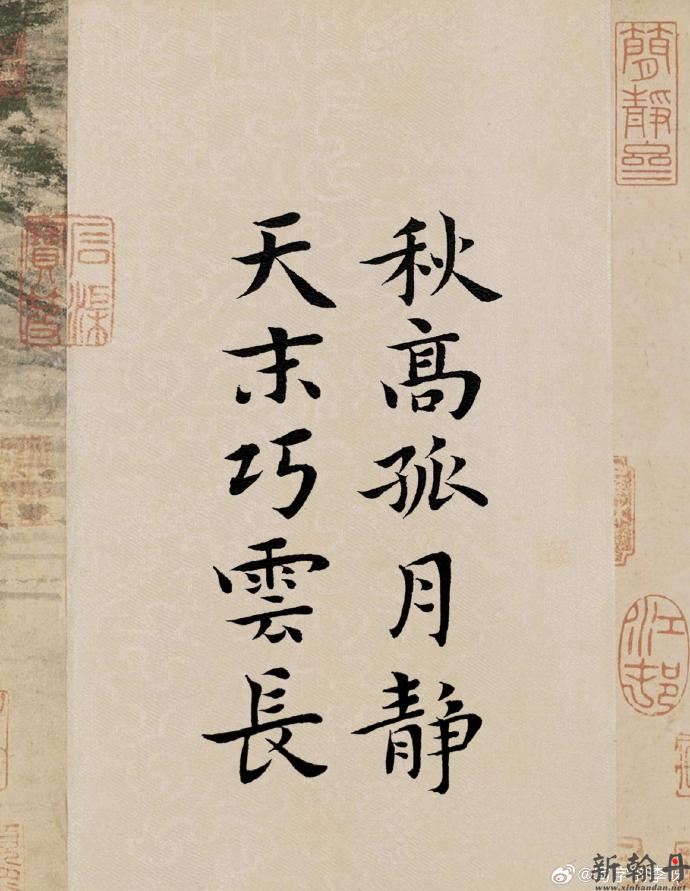 秋髙孤月静
天末巧雲長
江邨
新翰丹
www.xinhandan.net